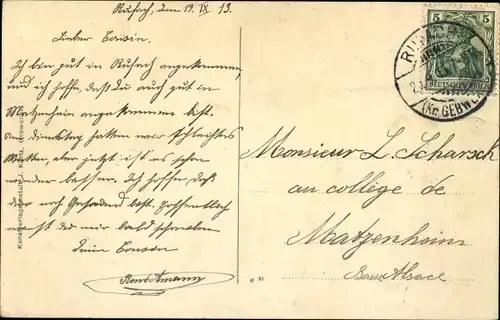 Rufach, den 19. IX 13.
Lieber Cousin.
Ich bin gut in Rufach angekommen,
und ich hoffe, daß du auch gut in
Matzenheim angekommen bist.
Am Dienstag hatten wir schlechtes
Wetter, aber jetzt ist es schon
wieder besser. Ich hoffe, daß
du noch Gesund bist. Hoffentlich
wirst du mir bald schreiben
Dein Cousin
Monsieur L. Scharsch
au collège de
Matzenheim
Basse Alsace
5 5
DEUTSCHES REICH
RUFACH
(Kr. GEBW.